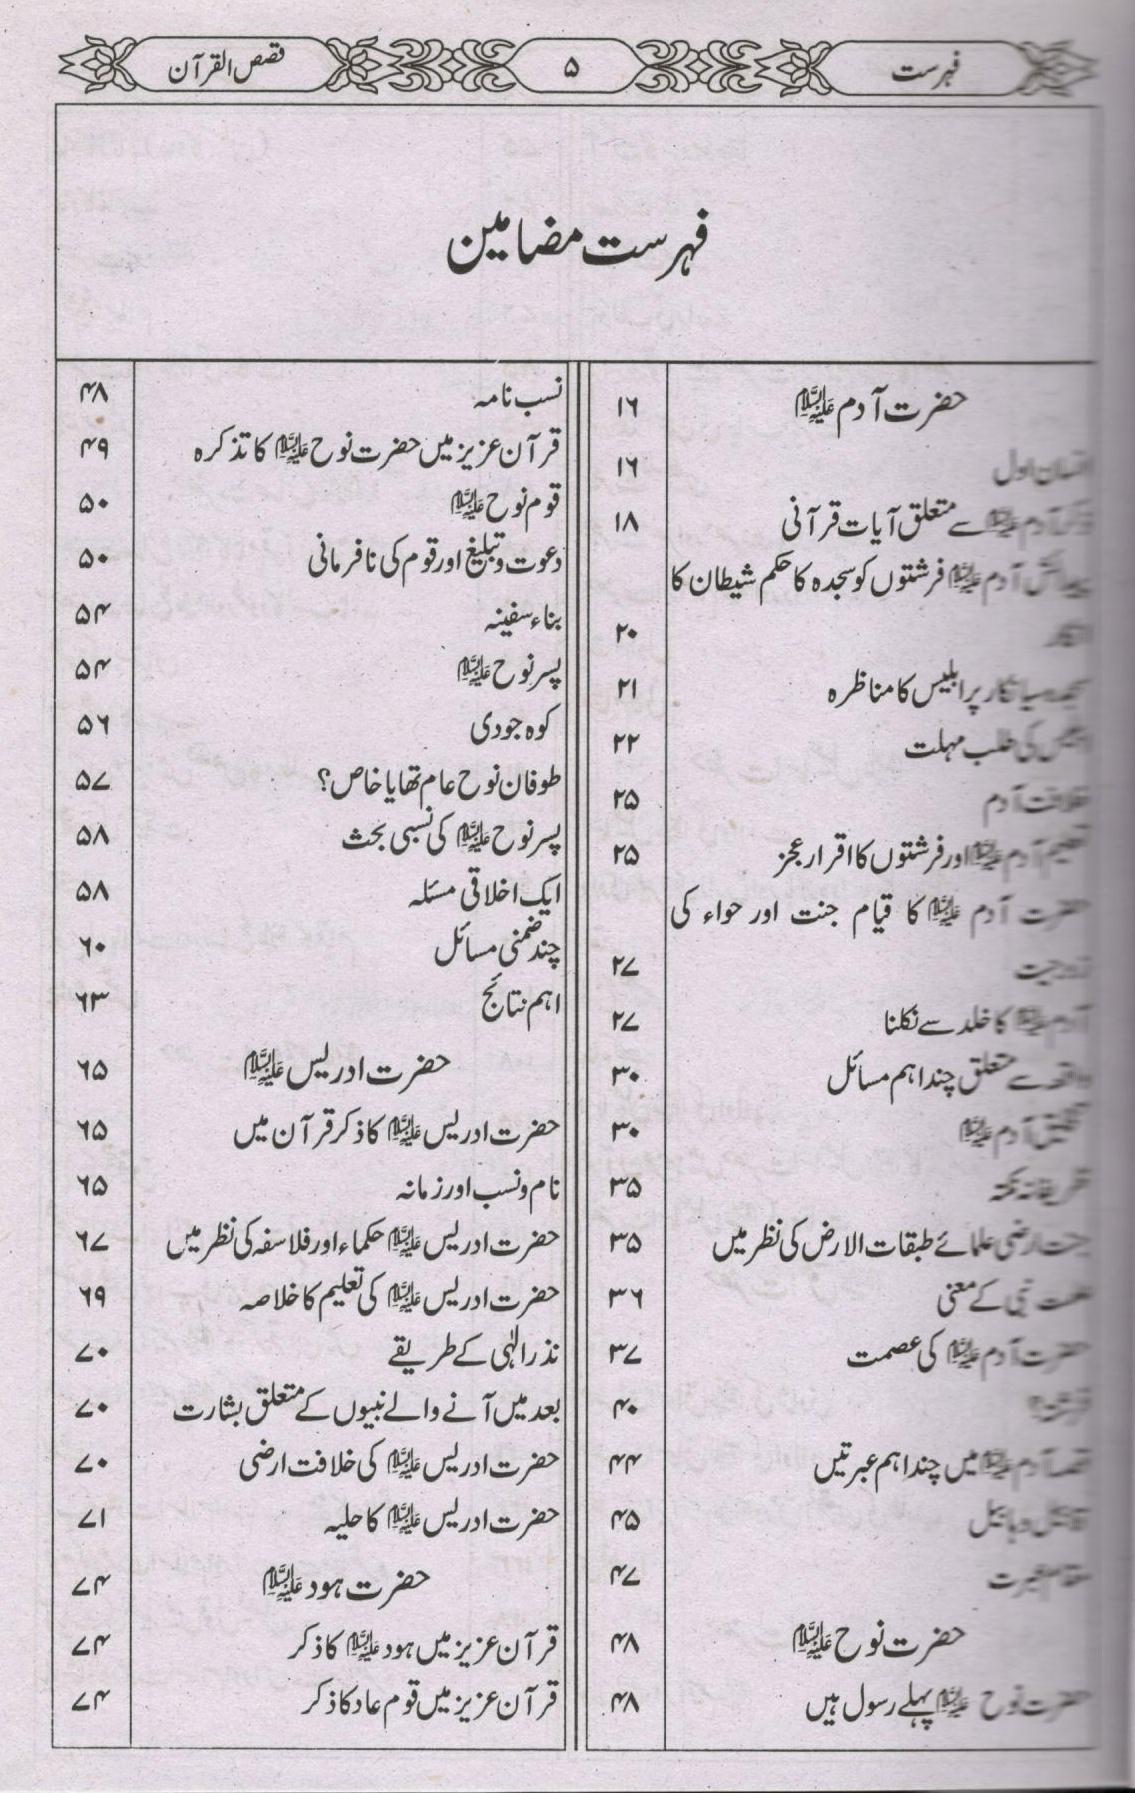 فہرست
۵
قصص القرآن
فہرست مضامین
حضرت آدم علیہ السلام ۱۶
انسان اول ۱۶
ذکر آدم علیہ السلام سے متعلق آیات قرآنی ۱۸
پیدائش آدم علیہ السلام فرشتوں کو سجدہ کا حکم شیطان کا
انکار ۲۰
سجدہ سے انکار پر ابلیس کا مناظرہ ۲۱
ابلیس کی طلب مہلت ۲۲
خلافت آدم ۲۵
تعلیم آدم علیہ السلام اور فرشتوں کا اقرار عجز ۲۵
حضرت آدم علیہ السلام کا قیام جنت اور حواء کی
زوجیت ۲۷
آدم علیہ السلام کا خلد سے نکلنا ۲۷
واقعہ سے متعلق چند اہم مسائل ۳۰
تخلیق آدم علیہ السلام ۳۰
ظریفانہ نکتہ ۳۵
جنت ارضی علمائے طبقات الارض کی نظر میں ۳۵
عصمت نبی کے معنی ۳۶
حضرت آدم علیہ السلام کی عصمت ۳۷
فرشتہ؟ ۴۰
قصہ آدم علیہ السلام میں چند اہم عبرتیں ۴۴
قابیل و ہابیل ۴۵
مقام عبرت ۴۷
حضرت نوح علیہ السلام ۴۸
حضرت نوح علیہ السلام پہلے رسول ہیں ۴۸
نسب نامہ ۴۸
قرآن عزیز میں حضرت نوح علیہ السلام کا تذکرہ ۴۹
قوم نوح علیہ السلام ۵۰
دعوت و تبلیغ اور قوم کی نافرمانی ۵۰
بناء سفینہ ۵۴
پسر نوح علیہ السلام ۵۴
کوہ جودی ۵۶
طوفان نوح عام تھا یا خاص؟ ۵۷
پسر نوح علیہ السلام کی نسبی بحث ۵۸
ایک اخلاقی مسئلہ ۵۸
چند ضمنی مسائل ۶۰
اہم نتائج ۶۳
حضرت ادریس علیہ السلام ۶۵
حضرت ادریس علیہ السلام کا ذکر قرآن میں ۶۵
نام و نسب اور زمانہ ۶۵
حضرت ادریس علیہ السلام حکماء اور فلاسفہ کی نظر میں ۶۷
حضرت ادریس علیہ السلام کی تعلیم کا خلاصہ ۶۹
نذر الٰہی کے طریقے ۷۰
بعد میں آنے والے نبیوں کے متعلق بشارت ۷۰
حضرت ادریس علیہ السلام کی خلافت ارضی ۷۰
حضرت ادریس علیہ السلام کا حلیہ ۷۱
حضرت ہود علیہ السلام ۷۴
قرآن عزیز میں ہود علیہ السلام کا ذکر ۷۴
قرآن عزیز میں قوم عاد کا ذکر ۷۴